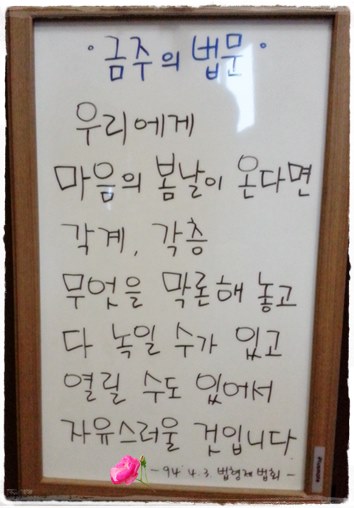 · 금주의 법문 ·
우리에게
마음의 봄날이 온다면
각계, 각층
무엇을 막론해 놓고
다 녹일 수가 있고
열릴 수도 있어서
자유스러울 것입니다
- 94. 4. 3. 법형제 법회 -